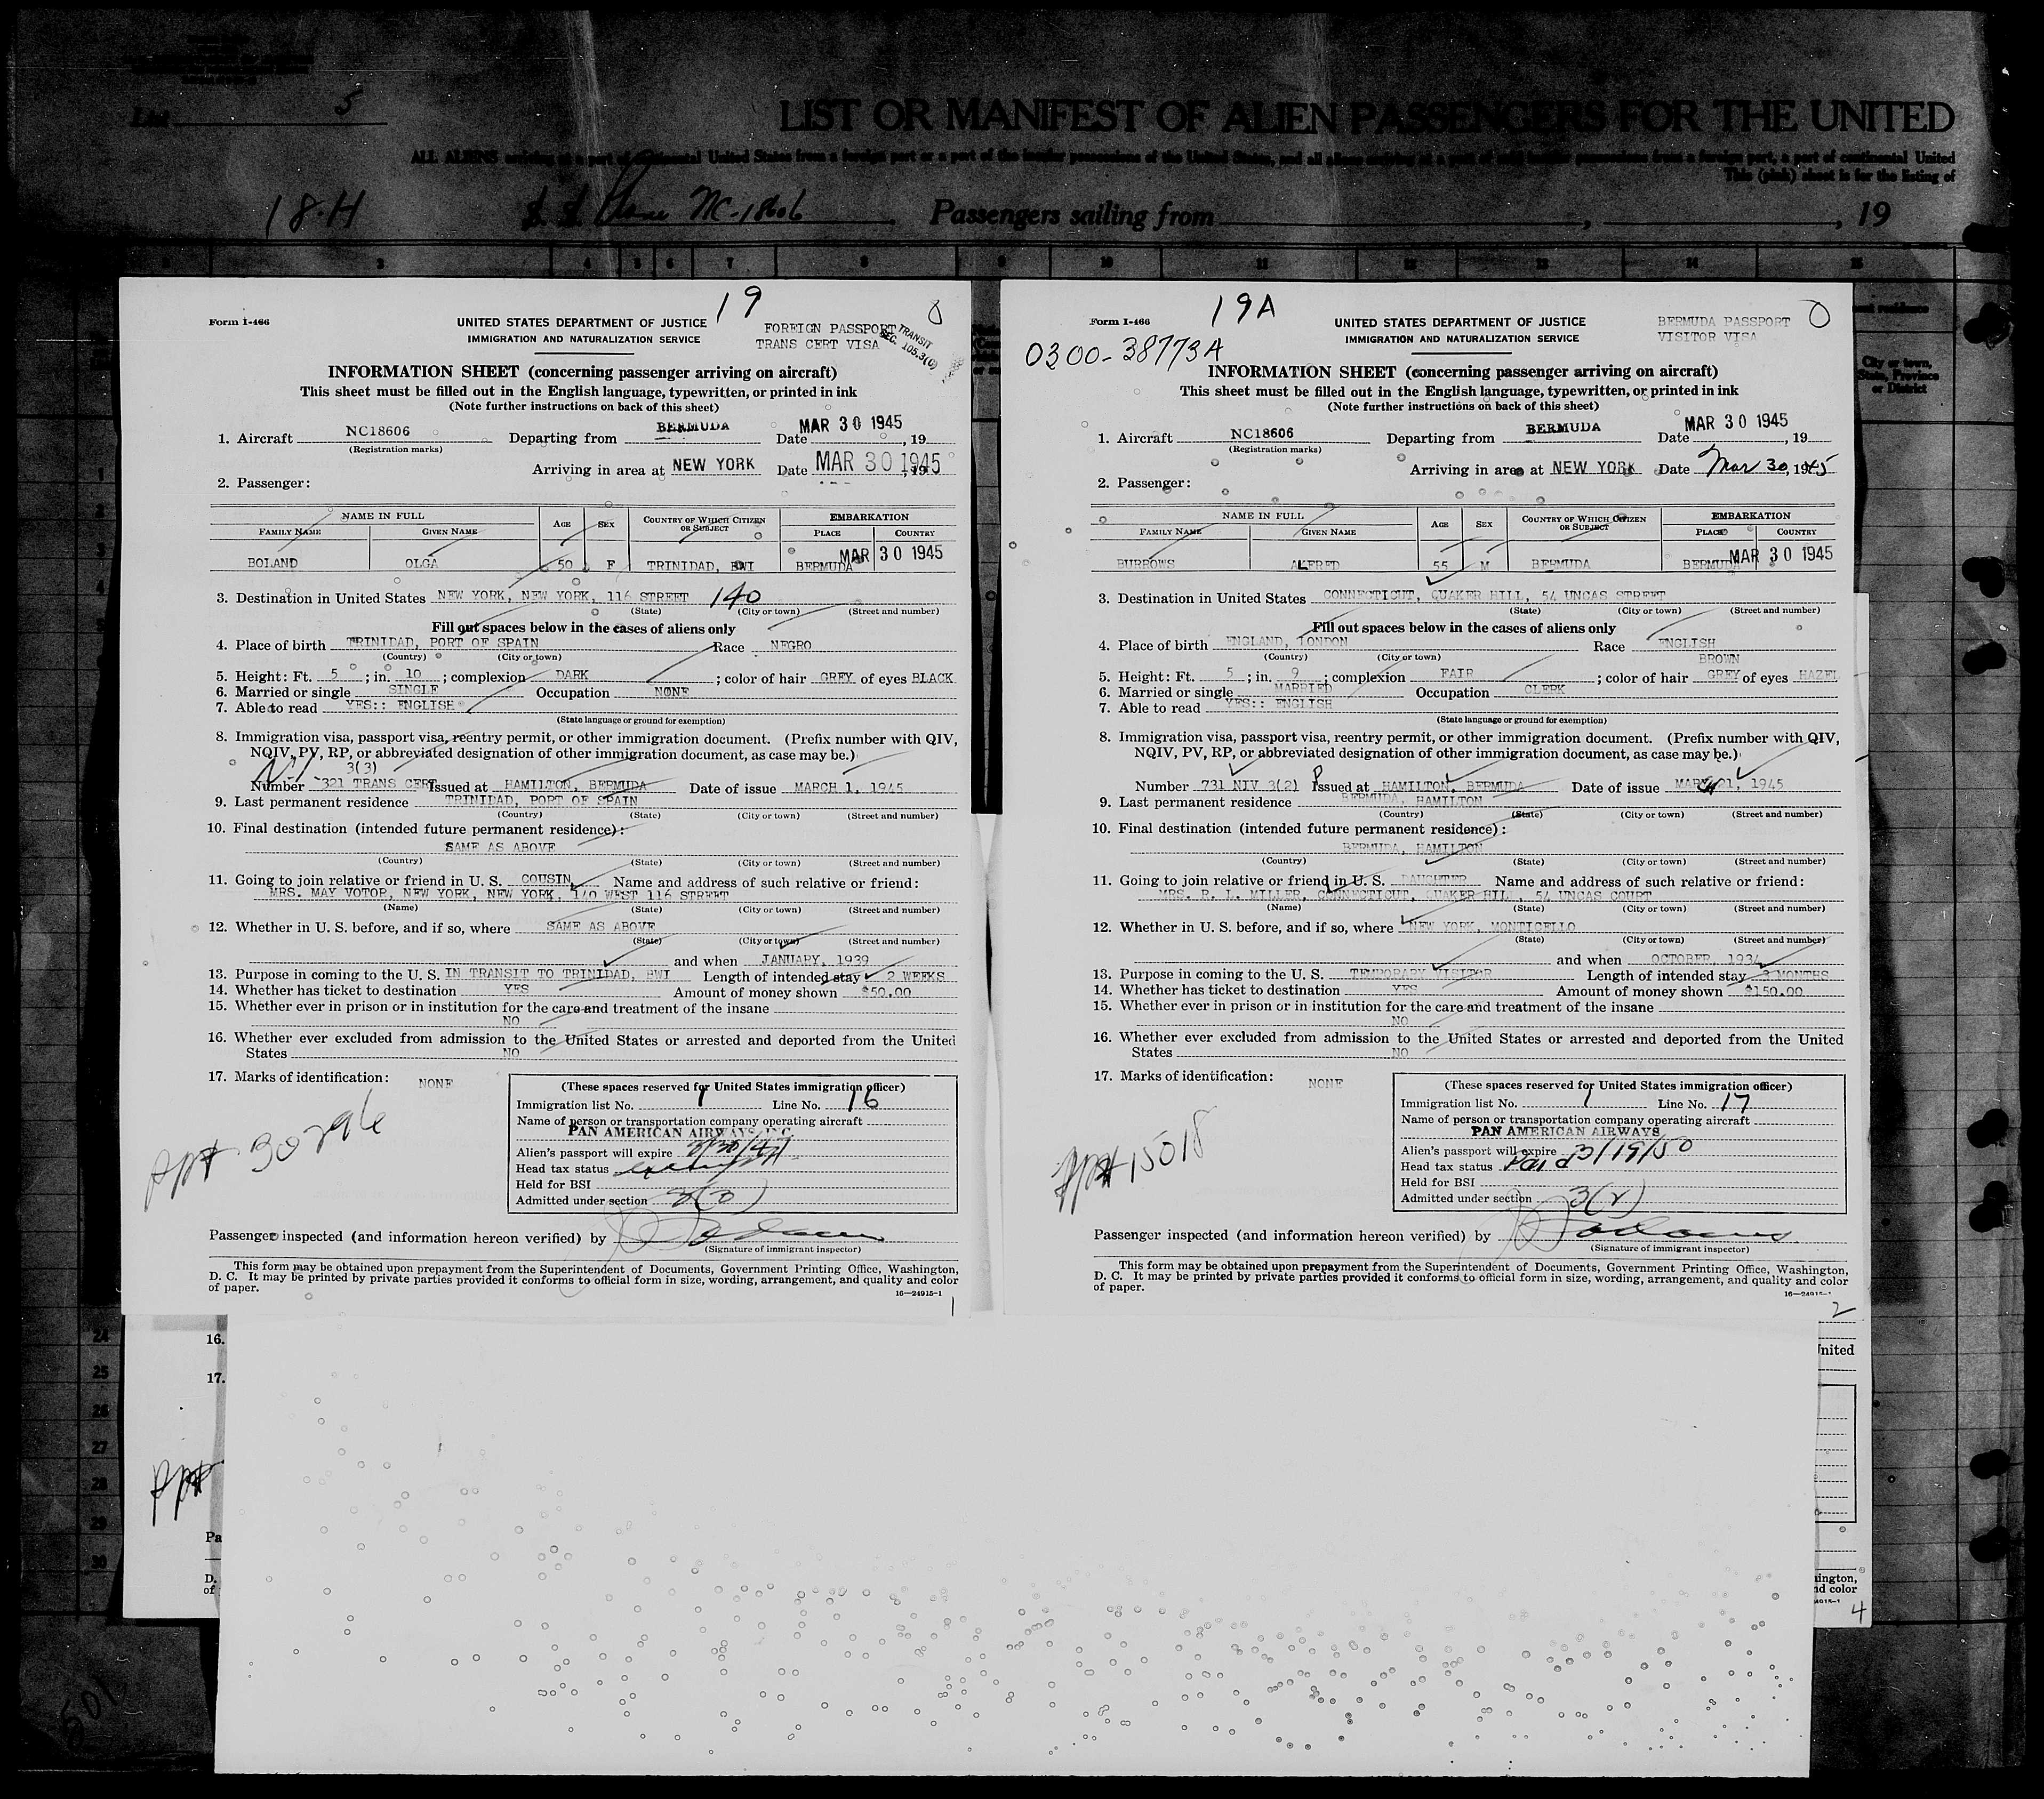 List 5
LIST OR MANIFEST OF ALIEN PASSENGERS FOR THE UNITED
ALL ALIENS arriving at a port of continental United States from a foreign port or a port of the insular possessions of the United States, and all aliens arriving at a port of said insular possessions from a foreign port, a port of continental United
This (pink) sheet is for the listing of
18-H S. S. Plane NC-18606 Passengers sailing from , , 19
3 4 5 6 7 8 9 10 11 12 13 14 15
City or town, State, Province or District
19
Form I-466
UNITED STATES DEPARTMENT OF JUSTICE
IMMIGRATION AND NATURALIZATION SERVICE
FOREIGN PASSPORT
TRANS CERT VISA
TRANSIT
SEC. 105.3(C)
INFORMATION SHEET (concerning passenger arriving on aircraft)
This sheet must be filled out in the English language, typewritten, or printed in ink
(Note further instructions on back of this sheet)
1. Aircraft NC18606 Departing from BERMUDA Date MAR 30 1945, 19
(Registration marks)
Arriving in area at NEW YORK Date MAR 30 1945, 19
2. Passenger:
NAME IN FULL
FAMILY NAME GIVEN NAME AGE SEX COUNTRY OF WHICH CITIZEN OR SUBJECT EMBARKATION
PLACE COUNTRY
BOLAND OLGA 50 F TRINIDAD, BWI BERMUDA MAR 30 1945
3. Destination in United States NEW YORK, NEW YORK, 116 STREET 140
(State) (City or town) (Street and number)
Fill out spaces below in the cases of aliens only
4. Place of birth TRINIDAD, PORT OF SPAIN Race NEGRO
(Country) (City or town)
5. Height: Ft. 5; in. 10; complexion DARK; color of hair GREY of eyes BLACK
6. Married or single SINGLE Occupation NONE
7. Able to read YES:: ENGLISH
(State language or ground for exemption)
8. Immigration visa, passport visa, reentry permit, or other immigration document. (Prefix number with QIV,
NQIV, PV, RP, or abbreviated designation of other immigration document, as case may be.)
3(3)
Number 321 TRANS CERT Issued at HAMILTON, BERMUDA Date of issue MARCH 1, 1945
9. Last permanent residence TRINIDAD, PORT OF SPAIN
(Country) (State) (City or town) (Street and number)
10. Final destination (intended future permanent residence):
SAME AS ABOVE
(Country) (State) (City or town) (Street and number)
11. Going to join relative or friend in U. S. COUSIN Name and address of such relative or friend:
MRS. MAY VOTOR, NEW YORK, NEW YORK, 140 WEST 116 STREET
(Name) (State) (City or town) (Street and number)
12. Whether in U. S. before, and if so, where SAME AS ABOVE
(State) (City or town) (Street and number)
and when JANUARY, 1939
13. Purpose in coming to the U. S. IN TRANSIT TO TRINIDAD, BWI Length of intended stay 2 WEEKS
14. Whether has ticket to destination YES Amount of money shown $50.00
15. Whether ever in prison or in institution for the care and treatment of the insane
NO
16. Whether ever excluded from admission to the United States or arrested and deported from the United
States NO
17. Marks of identification: NONE
ppt 30796
(These spaces reserved for United States immigration officer)
Immigration list No. 1 Line No. 16
Name of person or transportation company operating aircraft
PAN AMERICAN AIRWAYS INC
Alien's passport will expire
Head tax status
Held for BSI
Admitted under section 3(3)
Passenger inspected (and information hereon verified) by
(Signature of immigrant inspector)
This form may be obtained upon prepayment from the Superintendent of Documents, Government Printing Office, Washington,
D. C. It may be printed by private parties provided it conforms to official form in size, wording, arrangement, and quality and color
of paper.
16—24915-1
1
19A
Form I-466
0300-38773A
UNITED STATES DEPARTMENT OF JUSTICE
IMMIGRATION AND NATURALIZATION SERVICE
BERMUDA PASSPORT
VISITOR VISA
INFORMATION SHEET (concerning passenger arriving on aircraft)
This sheet must be filled out in the English language, typewritten, or printed in ink
(Note further instructions on back of this sheet)
1. Aircraft NC18606 Departing from BERMUDA Date MAR 30 1945, 19
(Registration marks)
Arriving in area at NEW YORK Date Mar 30, 1945
2. Passenger:
NAME IN FULL
FAMILY NAME GIVEN NAME AGE SEX COUNTRY OF WHICH CITIZEN OR SUBJECT EMBARKATION
PLACE COUNTRY
BURROWS ALFRED 55 M BERMUDA BERMUDA MAR 30 1945
3. Destination in United States CONNECTICUT, QUAKER HILL, 54 UNCAS STREET
(State) (City or town) (Street and number)
Fill out spaces below in the cases of aliens only
4. Place of birth ENGLAND, LONDON Race ENGLISH
(Country) (City or town)
BROWN
5. Height: Ft. 5; in. 9; complexion FAIR; color of hair GREY of eyes HAZEL
6. Married or single MARRIED Occupation CLERK
7. Able to read YES:: ENGLISH
(State language or ground for exemption)
8. Immigration visa, passport visa, reentry permit, or other immigration document. (Prefix number with QIV,
NQIV, PV, RP, or abbreviated designation of other immigration document, as case may be.)
Number 731 NIV 3(2) Issued at HAMILTON, BERMUDA Date of issue MARCH 21, 1945
9. Last permanent residence BERMUDA, HAMILTON
(Country) (State) (City or town) (Street and number)
10. Final destination (intended future permanent residence):
BERMUDA, HAMILTON
(Country) (State) (City or town) (Street and number)
11. Going to join relative or friend in U. S. DAUGHTER Name and address of such relative or friend:
MRS. R. L. MILLER, CONNECTICUT, QUAKER HIL, 54 UNCAS COURT
(Name) (State) (City or town) (Street and number)
12. Whether in U. S. before, and if so, where NEW YORK, MONTICELLO
(State) (City or town) (Street and number)
and when OCTOBER, 1934
13. Purpose in coming to the U. S. TEMPORARY VISITOR Length of intended stay 3 MONTHS
14. Whether has ticket to destination YES Amount of money shown $150.00
15. Whether ever in prison or in institution for the care and treatment of the insane
NO
16. Whether ever excluded from admission to the United States or arrested and deported from the United
States NO
17. Marks of identification: NONE
ppt 15018
(These spaces reserved for United States immigration officer)
Immigration list No. 1 Line No. 17
Name of person or transportation company operating aircraft
PAN AMERICAN AIRWAYS
Alien's passport will expire 3/19/50
Head tax status Paid
Held for BSI
Admitted under section 3(2)
Passenger inspected (and information hereon verified) by
(Signature of immigrant inspector)
This form may be obtained upon prepayment from the Superintendent of Documents, Government Printing Office, Washington,
D. C. It may be printed by private parties provided it conforms to official form in size, wording, arrangement, and quality and color
of paper.
16—24915-1
2
16.
17.
ppt
Pa
D.
of
nited
ington,
nd color
4915-1
4
1
2
3
4
24
25
26
27
28
29
30
501